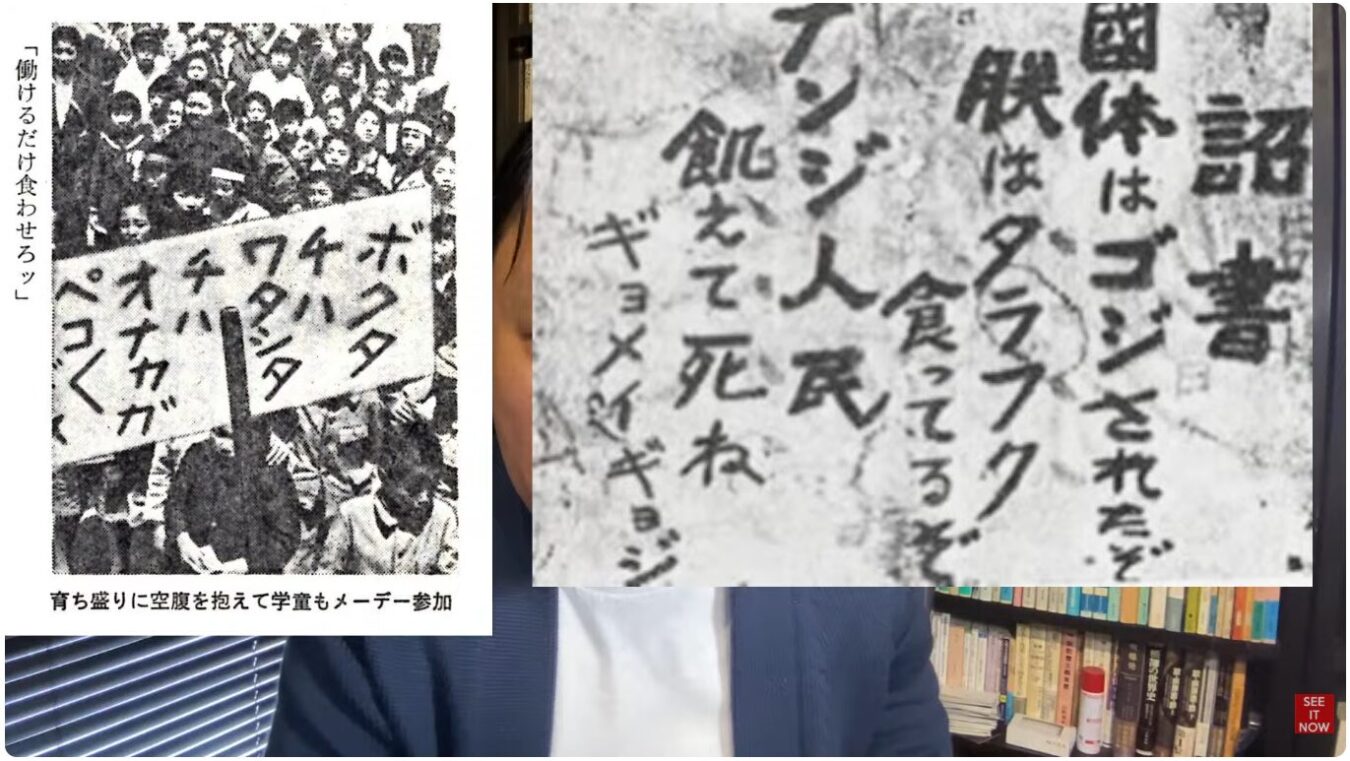 「働けるだけ食わせろッ」
ボクタ
チハ
ワタシタ
チハ
オナカガ
ペコ〱
育ち盛りに空腹を抱えて学童もメーデー参加
詔書
國体はゴジされたぞ
朕はタラフク
食ってるぞ
ナンジ人民
飢えて死ね
ギョメイギョジ
SEE
IT
NOW